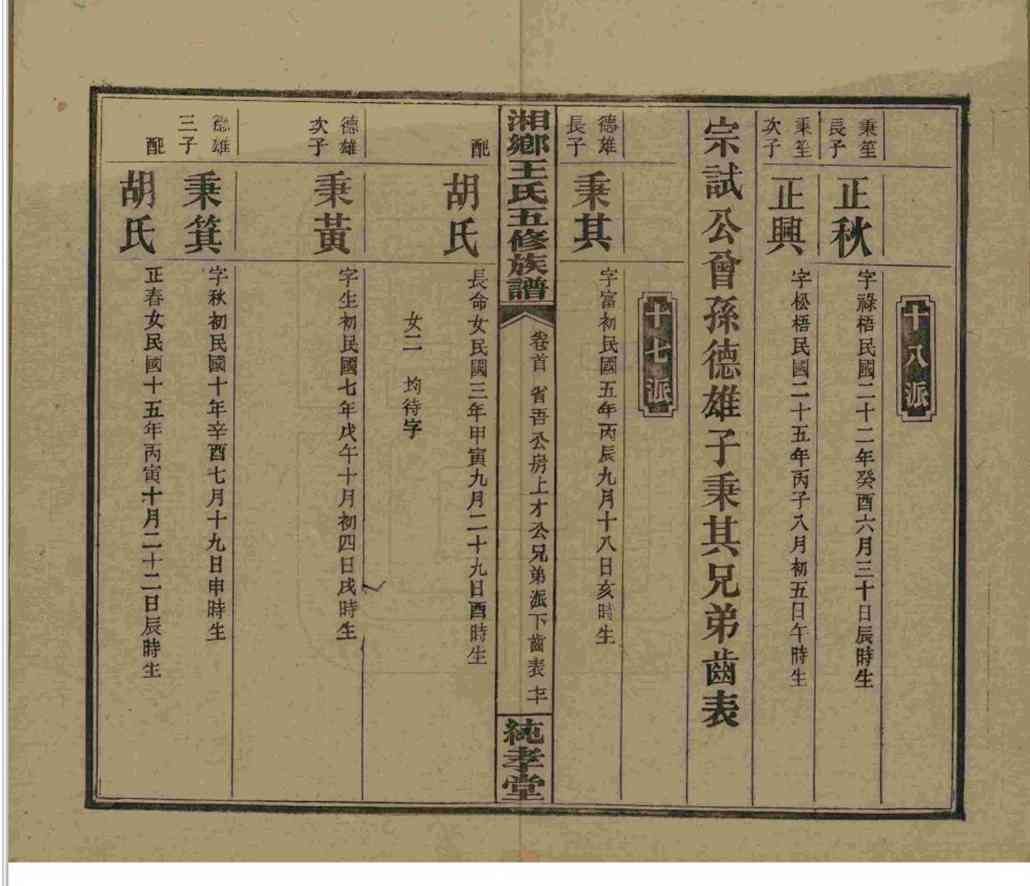 十八派
秉笙長子
正秋
字祿梧民國二十二年癸酉六月三十日辰時生
秉笙次子
正興
字松梧民國二十五年丙子八月初五日午時生
宗試公曾孫德雄子秉其兄弟齒表
十七派
德雄長子
秉其
字富初民國五年丙辰九月十八日亥時生
湘鄉王氏五修族譜
卷首 省吾公房上才公兄弟派下齒表
純孝堂
配
胡氏
長命女民國三年甲寅九月二十九日酉時生
女二 均待字
德雄次子
秉黃
字生初民國七年戊午十月初四日戌時生
德雄三子
秉箕
字秋初民國十年辛酉七月十九日申時生
配
胡氏
正春女民國十五年丙寅十月二十二日辰時生